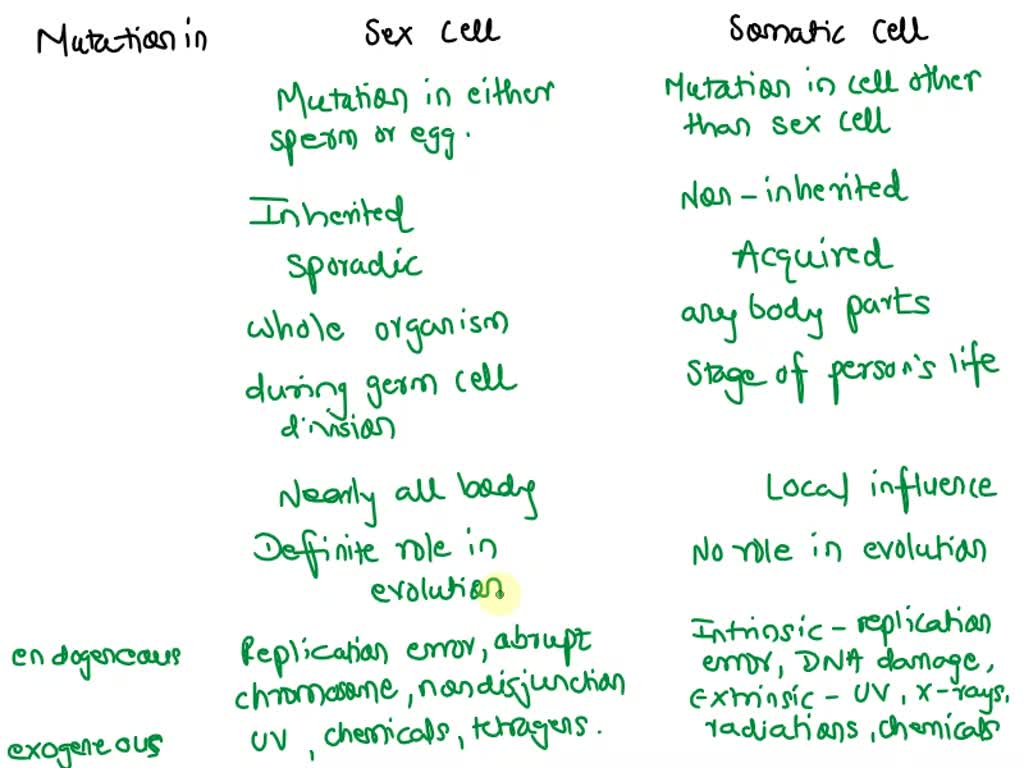 Mutation in Sex Cell Somatic Cell
Mutation in either Mutation in cell other
sperm or egg. than sex cell
Inherited Non-inherited
Sporadic Acquired
whole organism any body parts
during germ cell Stage of person's life
division
Nearly all body Local influence
Definite role in No role in evolution
evolution
endogeneous Replication error, abrupt Intrinsic - replication
chromosome, nondisjunction error, DNA damage,
exogeneous UV, chemicals, tetragens. extrinsic - UV, X-rays,
radiations, chemicals